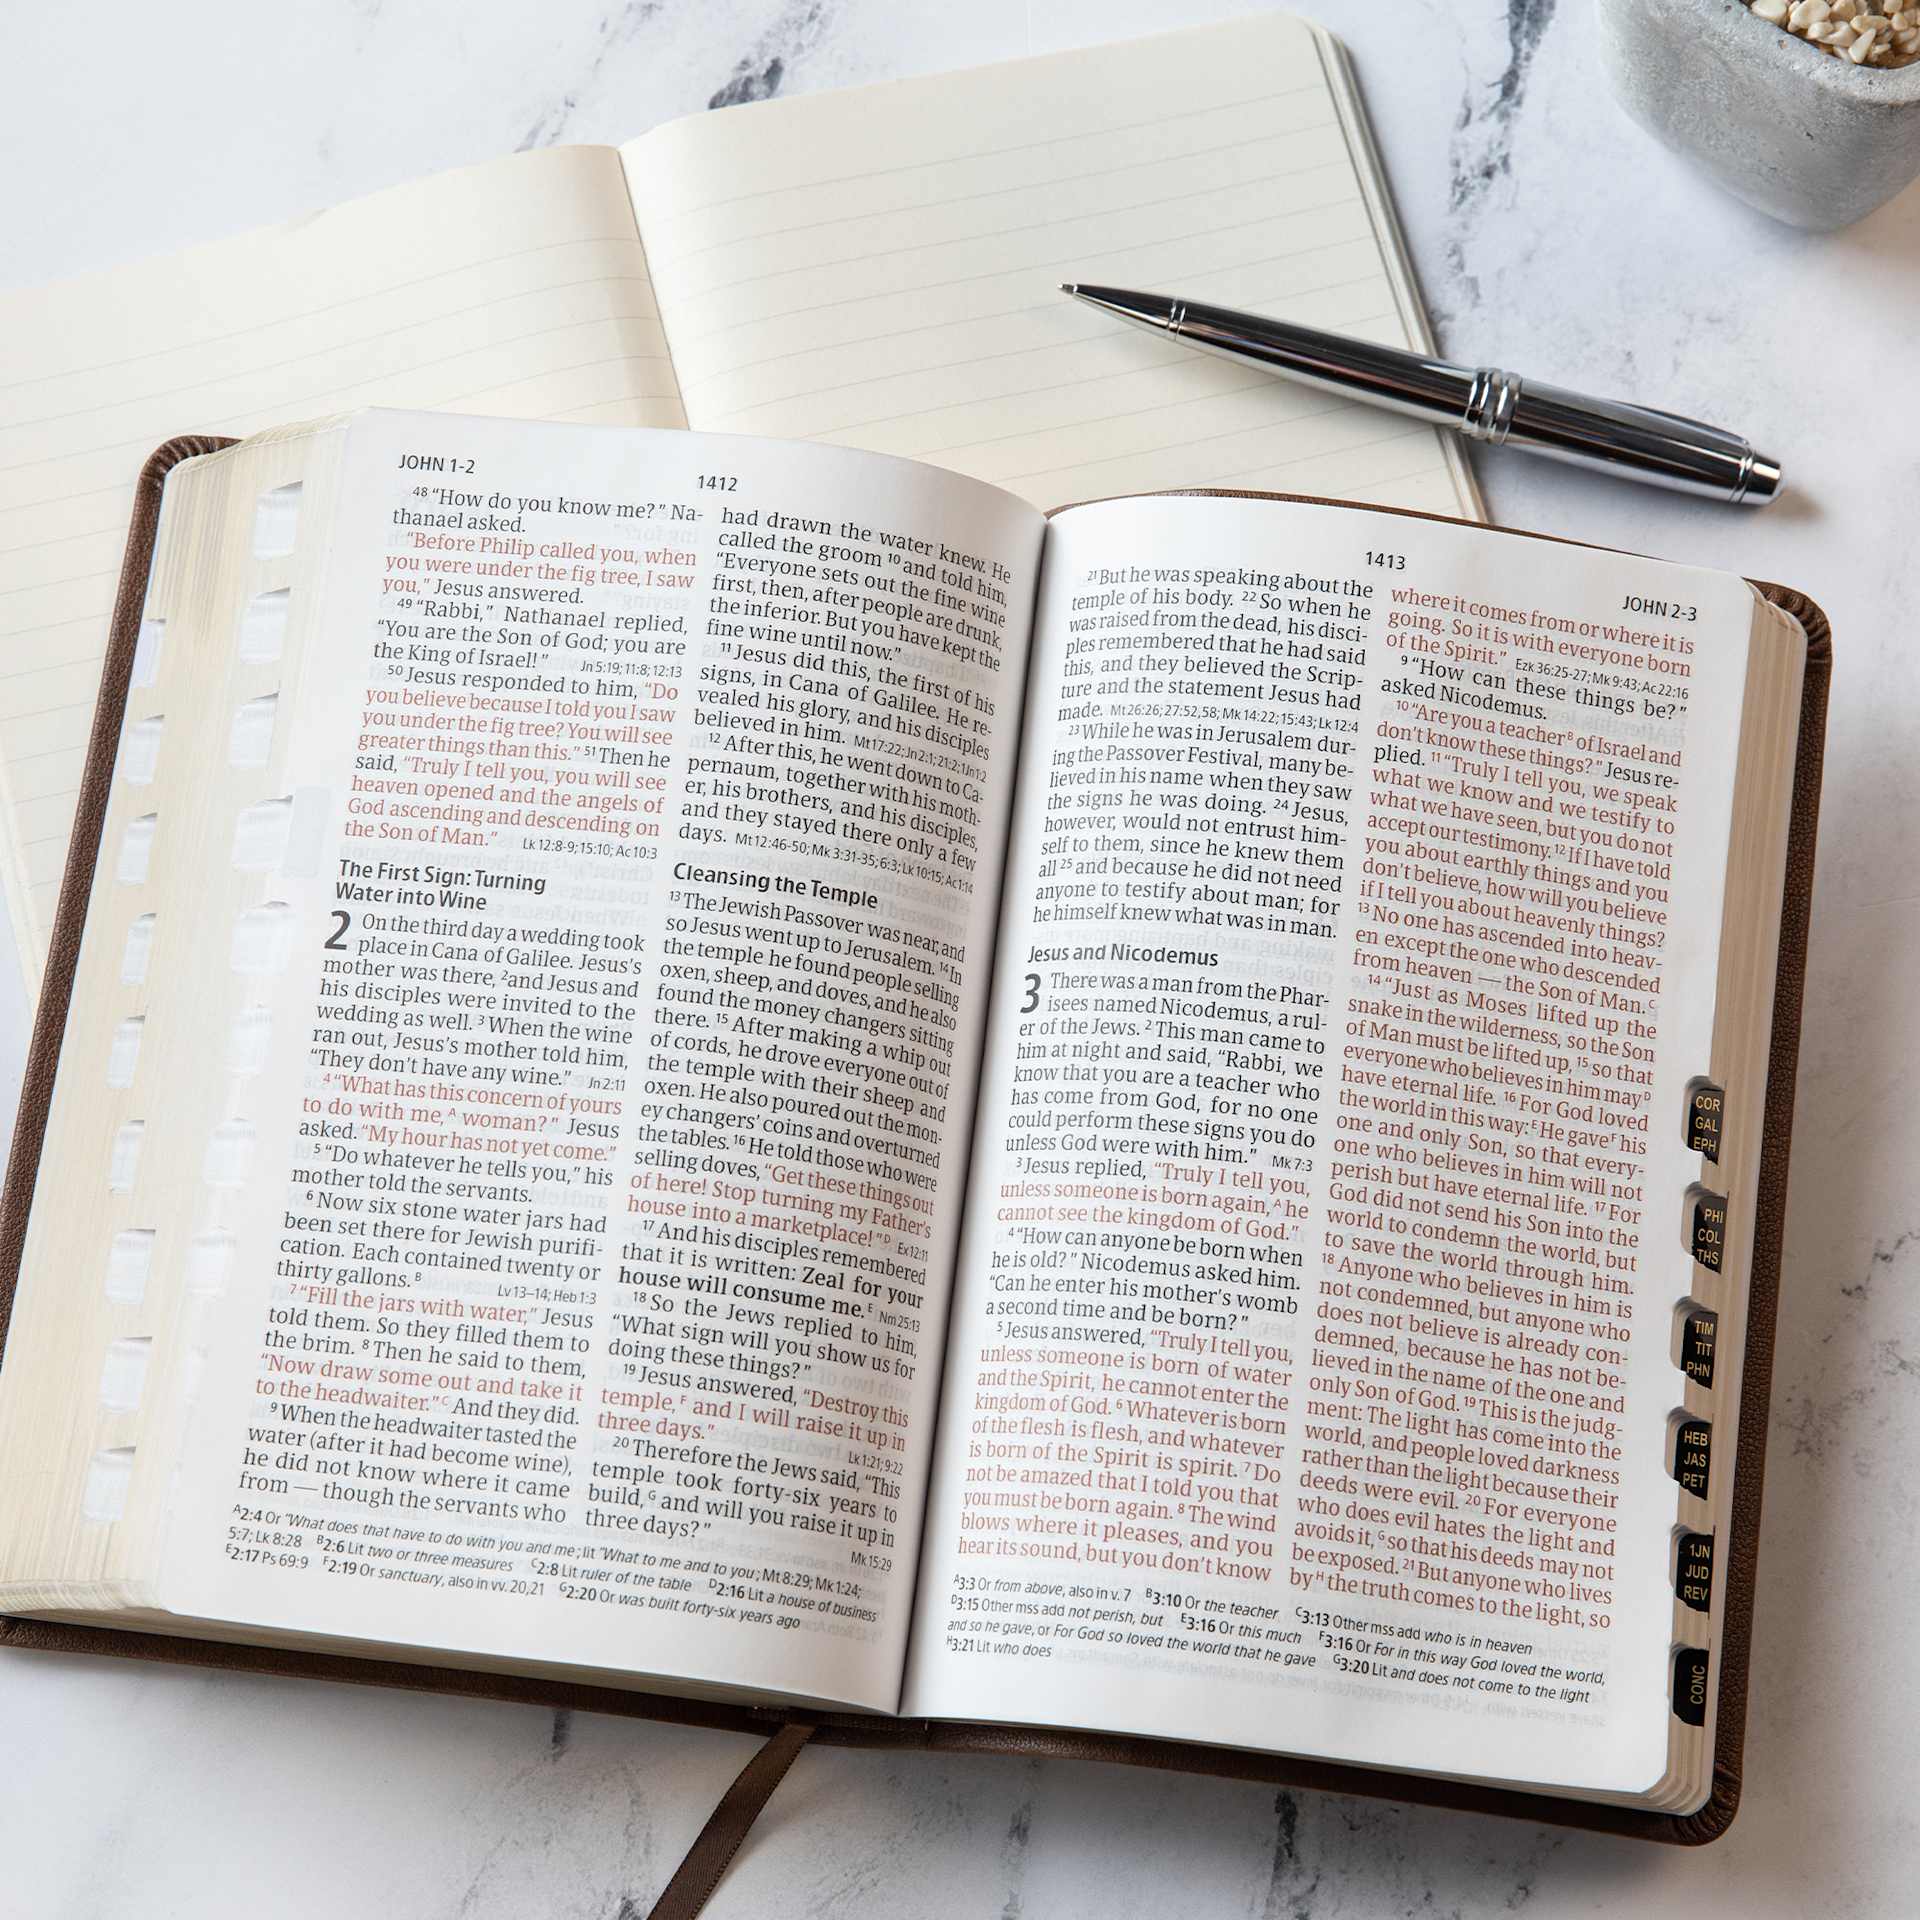 JOHN 1-2
1412
48 “How do you know me?” Na-
thanael asked.
“Before Philip called you, when
you were under the fig tree, I saw
you,” Jesus answered.
49 “Rabbi,” Nathanael replied,
“You are the Son of God; you are
the King of Israel!” Jn 5:19; 11:8; 12:13
50 Jesus responded to him, “Do
you believe because I told you I saw
you under the fig tree? You will see
greater things than this.” 51 Then he
said, “Truly I tell you, you will see
heaven opened and the angels of
God ascending and descending on
the Son of Man.” Lk 12:8-9; 15:10; Ac 10:3
The First Sign: Turning
Water into Wine
2 On the third day a wedding took
place in Cana of Galilee. Jesus’s
mother was there, 2 and Jesus and
his disciples were invited to the
wedding as well. 3 When the wine
ran out, Jesus’s mother told him,
“They don’t have any wine.” Jn 2:11
4 “What has this concern of yours
to do with me, A woman?” Jesus
asked. “My hour has not yet come.”
5 “Do whatever he tells you,” his
mother told the servants.
6 Now six stone water jars had
been set there for Jewish purifi-
cation. Each contained twenty or
thirty gallons. B Lv 13–14; Heb 1:3
7 “Fill the jars with water,” Jesus
told them. So they filled them to
the brim. 8 Then he said to them,
“Now draw some out and take it
to the headwaiter.” C And they did.
9 When the headwaiter tasted the
water (after it had become wine),
he did not know where it came
from — though the servants who
had drawn the water knew. He
called the groom 10 and told him,
“Everyone sets out the fine wine
first, then, after people are drunk,
the inferior. But you have kept the
fine wine until now.”
11 Jesus did this, the first of his
signs, in Cana of Galilee. He re-
vealed his glory, and his disciples
believed in him. Mt 17:22; Jn 2:1; 21:2; 1Jn 1:2
12 After this, he went down to Ca-
pernaum, together with his moth-
er, his brothers, and his disciples,
and they stayed there only a few
days. Mt 12:46-50; Mk 3:31-35; 6:3; Lk 10:15; Ac 1:14
Cleansing the Temple
13 The Jewish Passover was near, and
so Jesus went up to Jerusalem. 14 In
the temple he found people selling
oxen, sheep, and doves, and he also
found the money changers sitting
there. 15 After making a whip out
of cords, he drove everyone out of
the temple with their sheep and
oxen. He also poured out the mon-
ey changers’ coins and overturned
the tables. 16 He told those who were
selling doves, “Get these things out
of here! Stop turning my Father’s
house into a marketplace!” D Ex 12:11
17 And his disciples remembered
that it is written: Zeal for your
house will consume me. E Nm 25:13
18 So the Jews replied to him,
“What sign will you show us for
doing these things?”
19 Jesus answered, “Destroy this
temple, F and I will raise it up in
three days.” Lk 1:21; 9:22
20 Therefore the Jews said, “This
temple took forty-six years to
build, G and will you raise it up in
three days?” Mk 15:29
A 2:4 Or “What does that have to do with you and me; lit “What to me and to you; Mt 8:29; Mk 1:24;
5:7; Lk 8:28 B 2:6 Lit two or three measures C 2:8 Lit ruler of the table D 2:16 Lit a house of business
E 2:17 Ps 69:9 F 2:19 Or sanctuary, also in vv. 20,21 G 2:20 Or was built forty-six years ago
1413
JOHN 2-3
21 But he was speaking about the
temple of his body. 22 So when he
was raised from the dead, his disci-
ples remembered that he had said
this, and they believed the Scrip-
ture and the statement Jesus had
made. Mt 26:26; 27:52,58; Mk 14:22; 15:43; Lk 12:4
23 While he was in Jerusalem dur-
ing the Passover Festival, many be-
lieved in his name when they saw
the signs he was doing. 24 Jesus,
however, would not entrust him-
self to them, since he knew them
all 25 and because he did not need
anyone to testify about man; for
he himself knew what was in man.
Jesus and Nicodemus
3 There was a man from the Phar-
isees named Nicodemus, a rul-
er of the Jews. 2 This man came to
him at night and said, “Rabbi, we
know that you are a teacher who
has come from God, for no one
could perform these signs you do
unless God were with him.” Mk 7:3
3 Jesus replied, “Truly I tell you,
unless someone is born again, A he
cannot see the kingdom of God.”
4 “How can anyone be born when
he is old?” Nicodemus asked him.
“Can he enter his mother’s womb
a second time and be born?”
5 Jesus answered, “Truly I tell you,
unless someone is born of water
and the Spirit, he cannot enter the
kingdom of God. 6 Whatever is born
of the flesh is flesh, and whatever
is born of the Spirit is spirit. 7 Do
not be amazed that I told you that
you must be born again. 8 The wind
blows where it pleases, and you
hear its sound, but you don’t know
where it comes from or where it is
going. So it is with everyone born
of the Spirit.” Ezk 36:25-27; Mk 9:43; Ac 22:16
9 “How can these things be?”
asked Nicodemus.
10 “Are you a teacher B of Israel and
don’t know these things?” Jesus re-
plied. 11 “Truly I tell you, we speak
what we know and we testify to
what we have seen, but you do not
accept our testimony. 12 If I have told
you about earthly things and you
don’t believe, how will you believe
if I tell you about heavenly things?
13 No one has ascended into heav-
en except the one who descended
from heaven — the Son of Man. C
14 “Just as Moses lifted up the
snake in the wilderness, so the Son
of Man must be lifted up, 15 so that
everyone who believes in him may D
have eternal life. 16 For God loved
the world in this way: E He gave F his
one and only Son, so that every-
one who believes in him will not
perish but have eternal life. 17 For
God did not send his Son into the
world to condemn the world, but
to save the world through him.
18 Anyone who believes in him is
not condemned, but anyone who
does not believe is already con-
demned, because he has not be-
lieved in the name of the one and
only Son of God. 19 This is the judg-
ment: The light has come into the
world, and people loved darkness
rather than the light because their
deeds were evil. 20 For everyone
who does evil hates the light and
avoids it, G so that his deeds may not
be exposed. 21 But anyone who lives
by H the truth comes to the light, so
A 3:3 Or from above, also in v. 7 B 3:10 Or the teacher C 3:13 Other mss add who is in heaven
D 3:15 Other mss add not perish, but E 3:16 Or this much F 3:16 Or For in this way God loved the world,
and so he gave, or For God so loved the world that he gave G 3:20 Lit and does not come to the light
H 3:21 Lit who does
COR
GAL
EPH
PHI
COL
THS
TIM
TIT
PHN
HEB
JAS
PET
1JN
JUD
REV
CONC